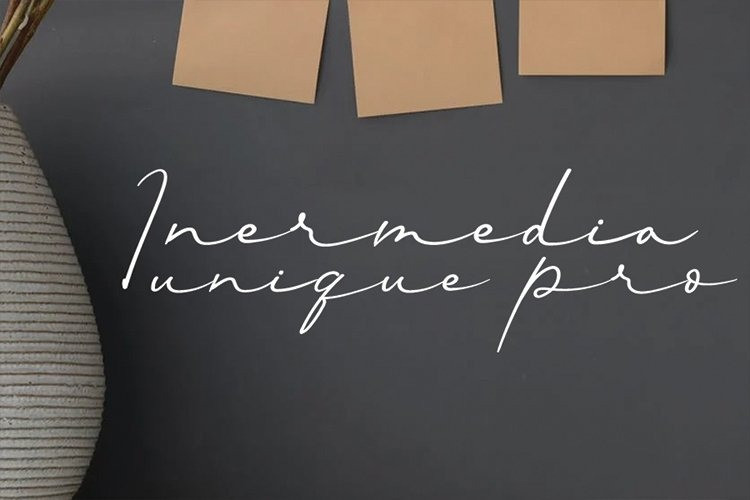 Inermedia
unique pro